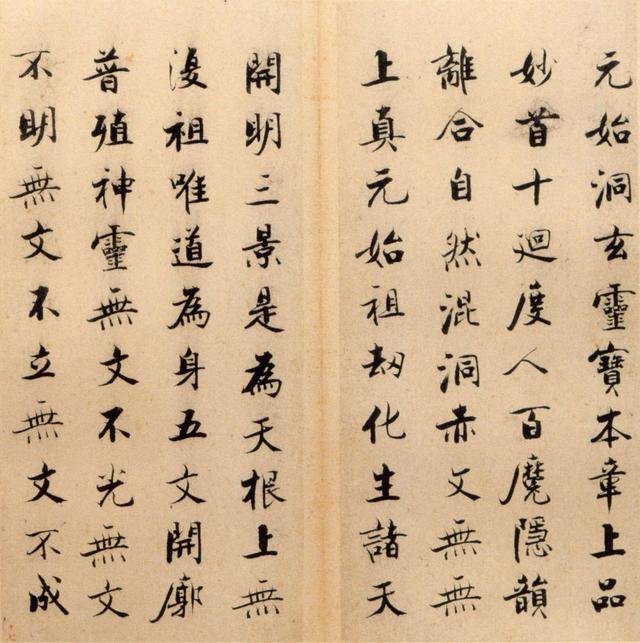 元始洞玄靈寶本章上品
妙首十迴度人百魔隱韻
離合自然混洞赤文無無
上真元始祖劫化生諸天
開明三景是為天根上無
復祖唯道為身五文開廓
普殖神靈無文不光無文
不明無文不立無文不成